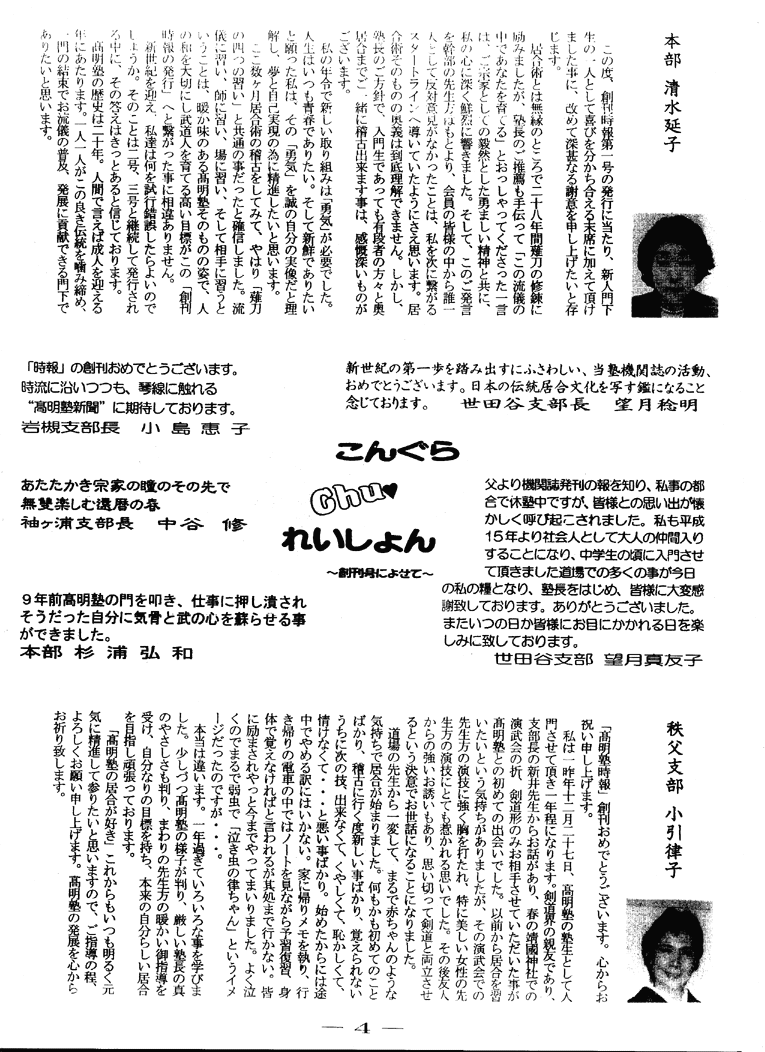 本部 清水延子
この度、創刊時報第一号の発行に当たり、新入門下
生の一人として喜びを分かち合える末席に加えて頂け
ました事に、改めて深甚なる謝意を申し上げたいと存
じます。
居合術とは無縁のところで二十八年間薙刀の修錬に
励みましたが、塾長のご推薦も手伝って「この流儀の
中であなたを育てる」とおっしゃってくださった一言
は、ご宗家としての毅然とした勇ましい精神と共に、
私の心に深く鮮烈に響きました。そして、このご発言
を幹部の先生方はもとより、会員の皆様の中から誰一
人として反対意見がなかったことは、私を次に繋がる
スタートラインへ導いていたようにさえ思います。居
合術そのものの奥義は到底理解できません。しかし、
塾長のご方針で、入門生であっても有段者の方々と奥
居合までご一緒に稽古出来ます事は、感慨深いものが
ございます。
私の年令で新しい取り組みは「勇気」が必要でした。
人生はいつも青春でありたい。そして新鮮でありたい
と願った私は、その「勇気」を誠の自分の実像だと理
解し、夢と自己実現の為に精進したいと思います。
ここ数ヶ月居合術の稽古をしてみて、やはり「薙刀
の四つの習い」と共通の事だったと確信しました。流
儀に習い、師に習い、場に習い、そして相手に習うと
いうことは、暖か味のある髙明塾そのものの姿で、人
の和を大切にし武道人を育てる高い目標がこの「創刊
時報の発行」へと繋がった事に相違ありません。
新世紀を迎え、私達は何を試行錯誤したらよいので
しょうか。そのことは二号、三号と継続して発行され
る中に、その答えはきっとあると信じております。
髙明塾の歴史は二十年。人間で言えば成人を迎える
年にあたります。一人一人がこの良き伝統を噛み締め、
一門の結束でお流儀の普及、発展に貢献できる門下で
ありたいと思います。
「時報」の創刊おめでとうございます。
時流に沿いつつも、琴線に触れる
“髙明塾新聞”に期待しております。
岩槻支部長 小島恵子
新世紀の第一歩を踏み出すにふさわしい、当塾機関誌の活動、
おめでとうございます。日本の伝統居合文化を写す鑑になること
念じております。 世田谷支部長 望月稔明
こんぐら
Chu♥
れいしょん
～創刊号によせて～
あたたかき宗家の瞳のその先で
無雙楽しむ還暦の春
袖ヶ浦支部長 中谷 修
父より機関誌発刊の報を知り、私事の都
合で休塾中ですが、皆様との思い出が懐
かしく呼び起こされました。私も平成
15年より社会人として大人の仲間入り
することになり、中学生の頃に入門させ
て頂きました道場での多くの事が今日
の私の糧となり、塾長をはじめ、皆様に大変感
謝致しております。ありがとうございました。
またいつの日か皆様にお目にかかれる日を楽
しみに致しております。
世田谷支部 望月真友子
９年前髙明塾の門を叩き、仕事に押し潰され
そうだった自分に気骨と武の心を蘇らせる事
ができました。
本部 杉浦弘和
秩父支部 小引律子
「髙明塾時報」創刊おめでとうございます。心からお
祝い申し上げます。
私は一昨年十二月二十七日、髙明塾の塾生として入
門させて頂き一年程になります。剣道界の親友であり、
支部長の新井先生からお話があり、春の靖國神社での
演武会の折、剣道形のみお相手させていただいた事が
髙明塾との初めての出会いでした。以前から居合を習
いたいという気持ちがありましたが、その演武会での
先生方の演技に強く胸を打たれ、特に美しい女性の先
生方の演技にとても惹かれる思いでした。その後友人
からの強いお誘いもあり、思い切って剣道と両立させ
るという決意でお世話になることになりました。
道場の先生から一変して、まるで赤ちゃんのような
気持ちで居合が始まりました。何もかも初めてのこと
ばかり、稽古に行く度新しい事ばかり、覚えられない
うちに次の技、出来なくて、くやしくて、恥かしくて、
情けなくて・・・と悪い事ばかり。始めたからには途
中でやめる訳にはいかない。家に帰りメモを執り、行
き帰りの電車の中ではノートを見ながら予習復習、身
体で覚えなければと言われるが其処まで行かない。皆
に励まされやっと今までやってまいりました。よく泣
くのでまるで弱虫で「泣き虫の律ちゃん」というイメ
ージだったのですが・・・。
本当は違います。一年過ぎていろいろな事を学びま
した。少しづつ髙明塾の様子が判り、厳しい塾長の真
のやさしさも判り、まわりの先生方の暖かい御指導を
受け、自分なりの目標を持ち、本来の自分らしい居合
を目指し頑張っております。
「髙明塾の居合が好き」これからもいつも明るく元
気に精進して参りたいと思いますので、ご指導の程、
よろしくお願い申し上げます。髙明塾の発展を心から
お祈り致します。
— 4 —